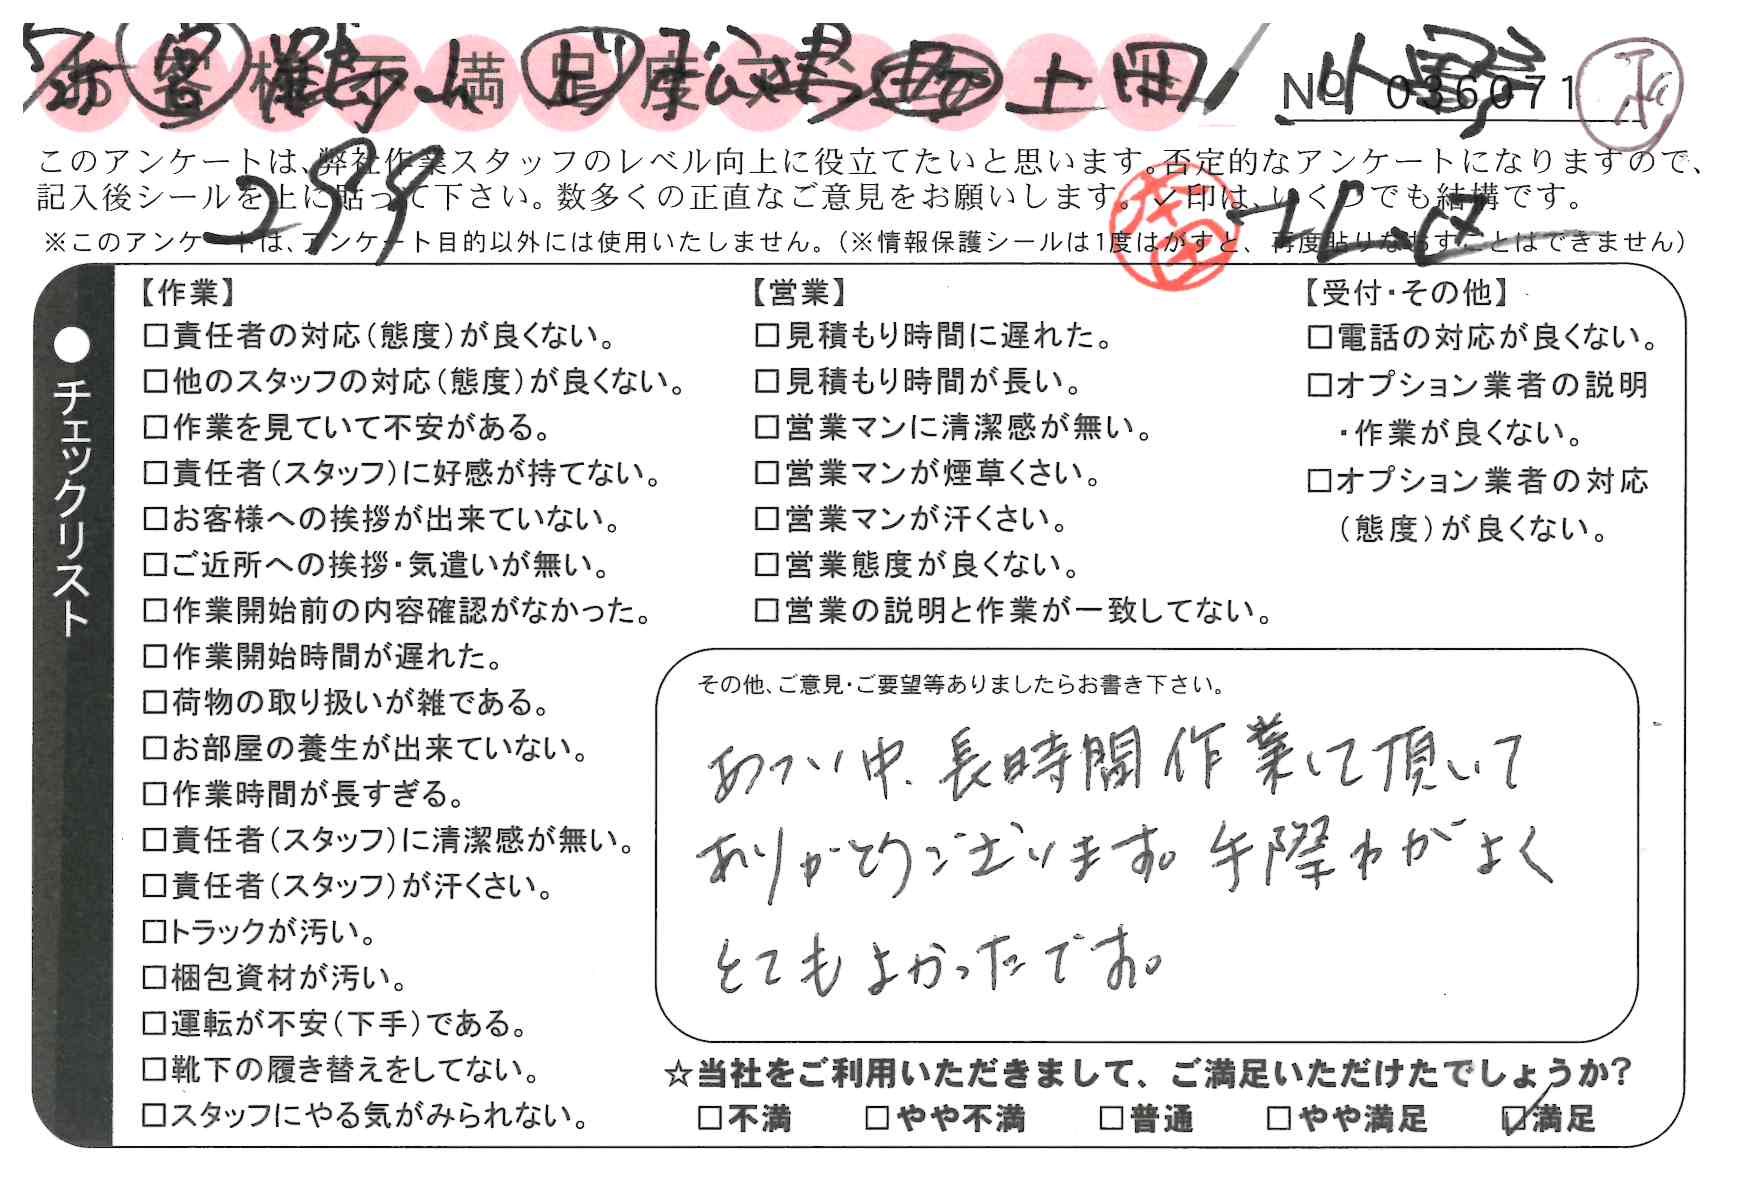 お客様不満足度アンケート
No 036071
このアンケートは、弊社作業スタッフのレベル向上に役立てたいと思います。否定的なアンケートになりますので、
記入後シールを上に貼って下さい。数多くの正直なご意見をお願いします。✓印は、いくつでも結構です。
299
※このアンケートは、アンケート目的以外には使用いたしません。(※情報保護シールは1度はがすと、再度貼りなおすことはできません)
●チェックリスト
【作業】
□責任者の対応(態度)が良くない。
□他のスタッフの対応(態度)が良くない。
□作業を見ていて不安がある。
□責任者(スタッフ)に好感が持てない。
□お客様への挨拶が出来ていない。
□ご近所への挨拶・気遣いが無い。
□作業開始前の内容確認がなかった。
□作業開始時間が遅れた。
□荷物の取り扱いが雑である。
□お部屋の養生が出来ていない。
□作業時間が長すぎる。
□責任者(スタッフ)に清潔感が無い。
□責任者(スタッフ)が汗くさい。
□トラックが汚い。
□梱包資材が汚い。
□運転が不安(下手)である。
□靴下の履き替えをしてない。
□スタッフにやる気がみられない。
【営業】
□見積もり時間に遅れた。
□見積もり時間が長い。
□営業マンに清潔感が無い。
□営業マンが煙草くさい。
□営業マンが汗くさい。
□営業態度が良くない。
□営業の説明と作業が一致してない。
【受付・その他】
□電話の対応が良くない。
□オプション業者の説明
・作業が良くない。
□オプション業者の対応
(態度)が良くない。
その他、ご意見・ご要望等ありましたらお書き下さい。
あつい中、長時間作業して頂いて
ありがとうございます。手際わがよく
とてもよかったです。
☆当社をご利用いただきまして、ご満足いただけたでしょうか?
□不満 □やや不満 □普通 □やや満足 ☑満足